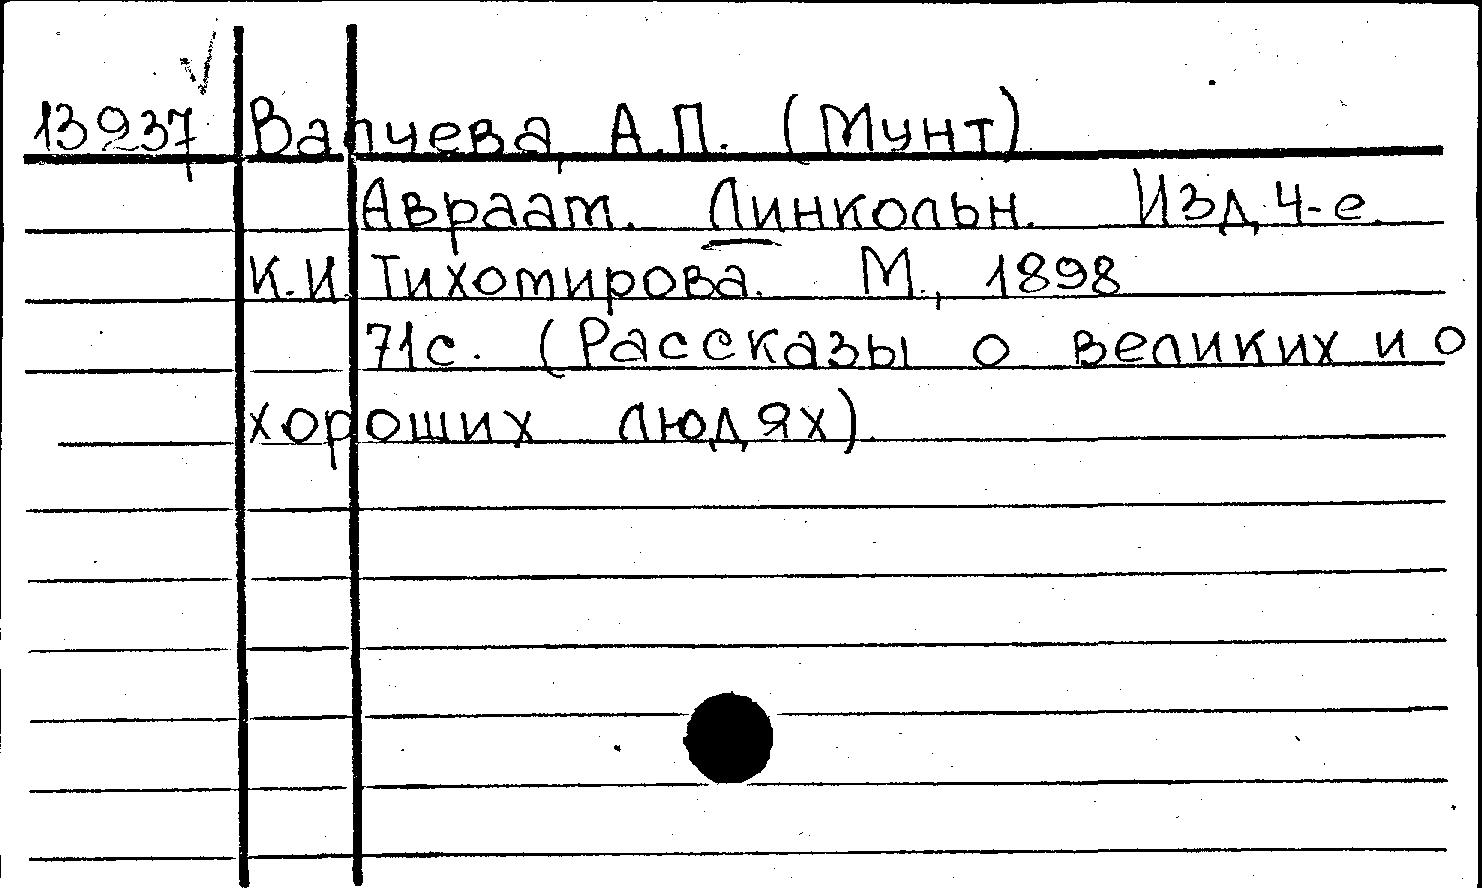 13937 Валуева, А.П. (Мунт)
Авраам. Линкольн. Изд. 4-е.
К.И. Тихомирова. М., 1898
71с. (Рассказы о великих и о
хороших людях).